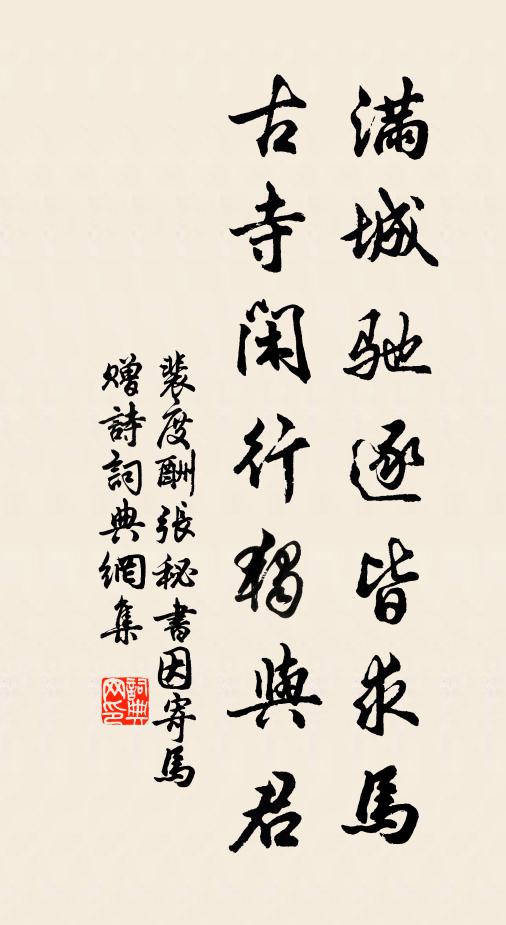 滿城馳逐皆求馬
古寺閑行獨與君
裴度酬張秘書因寄馬
贈詩詞典網集
詞典
网印